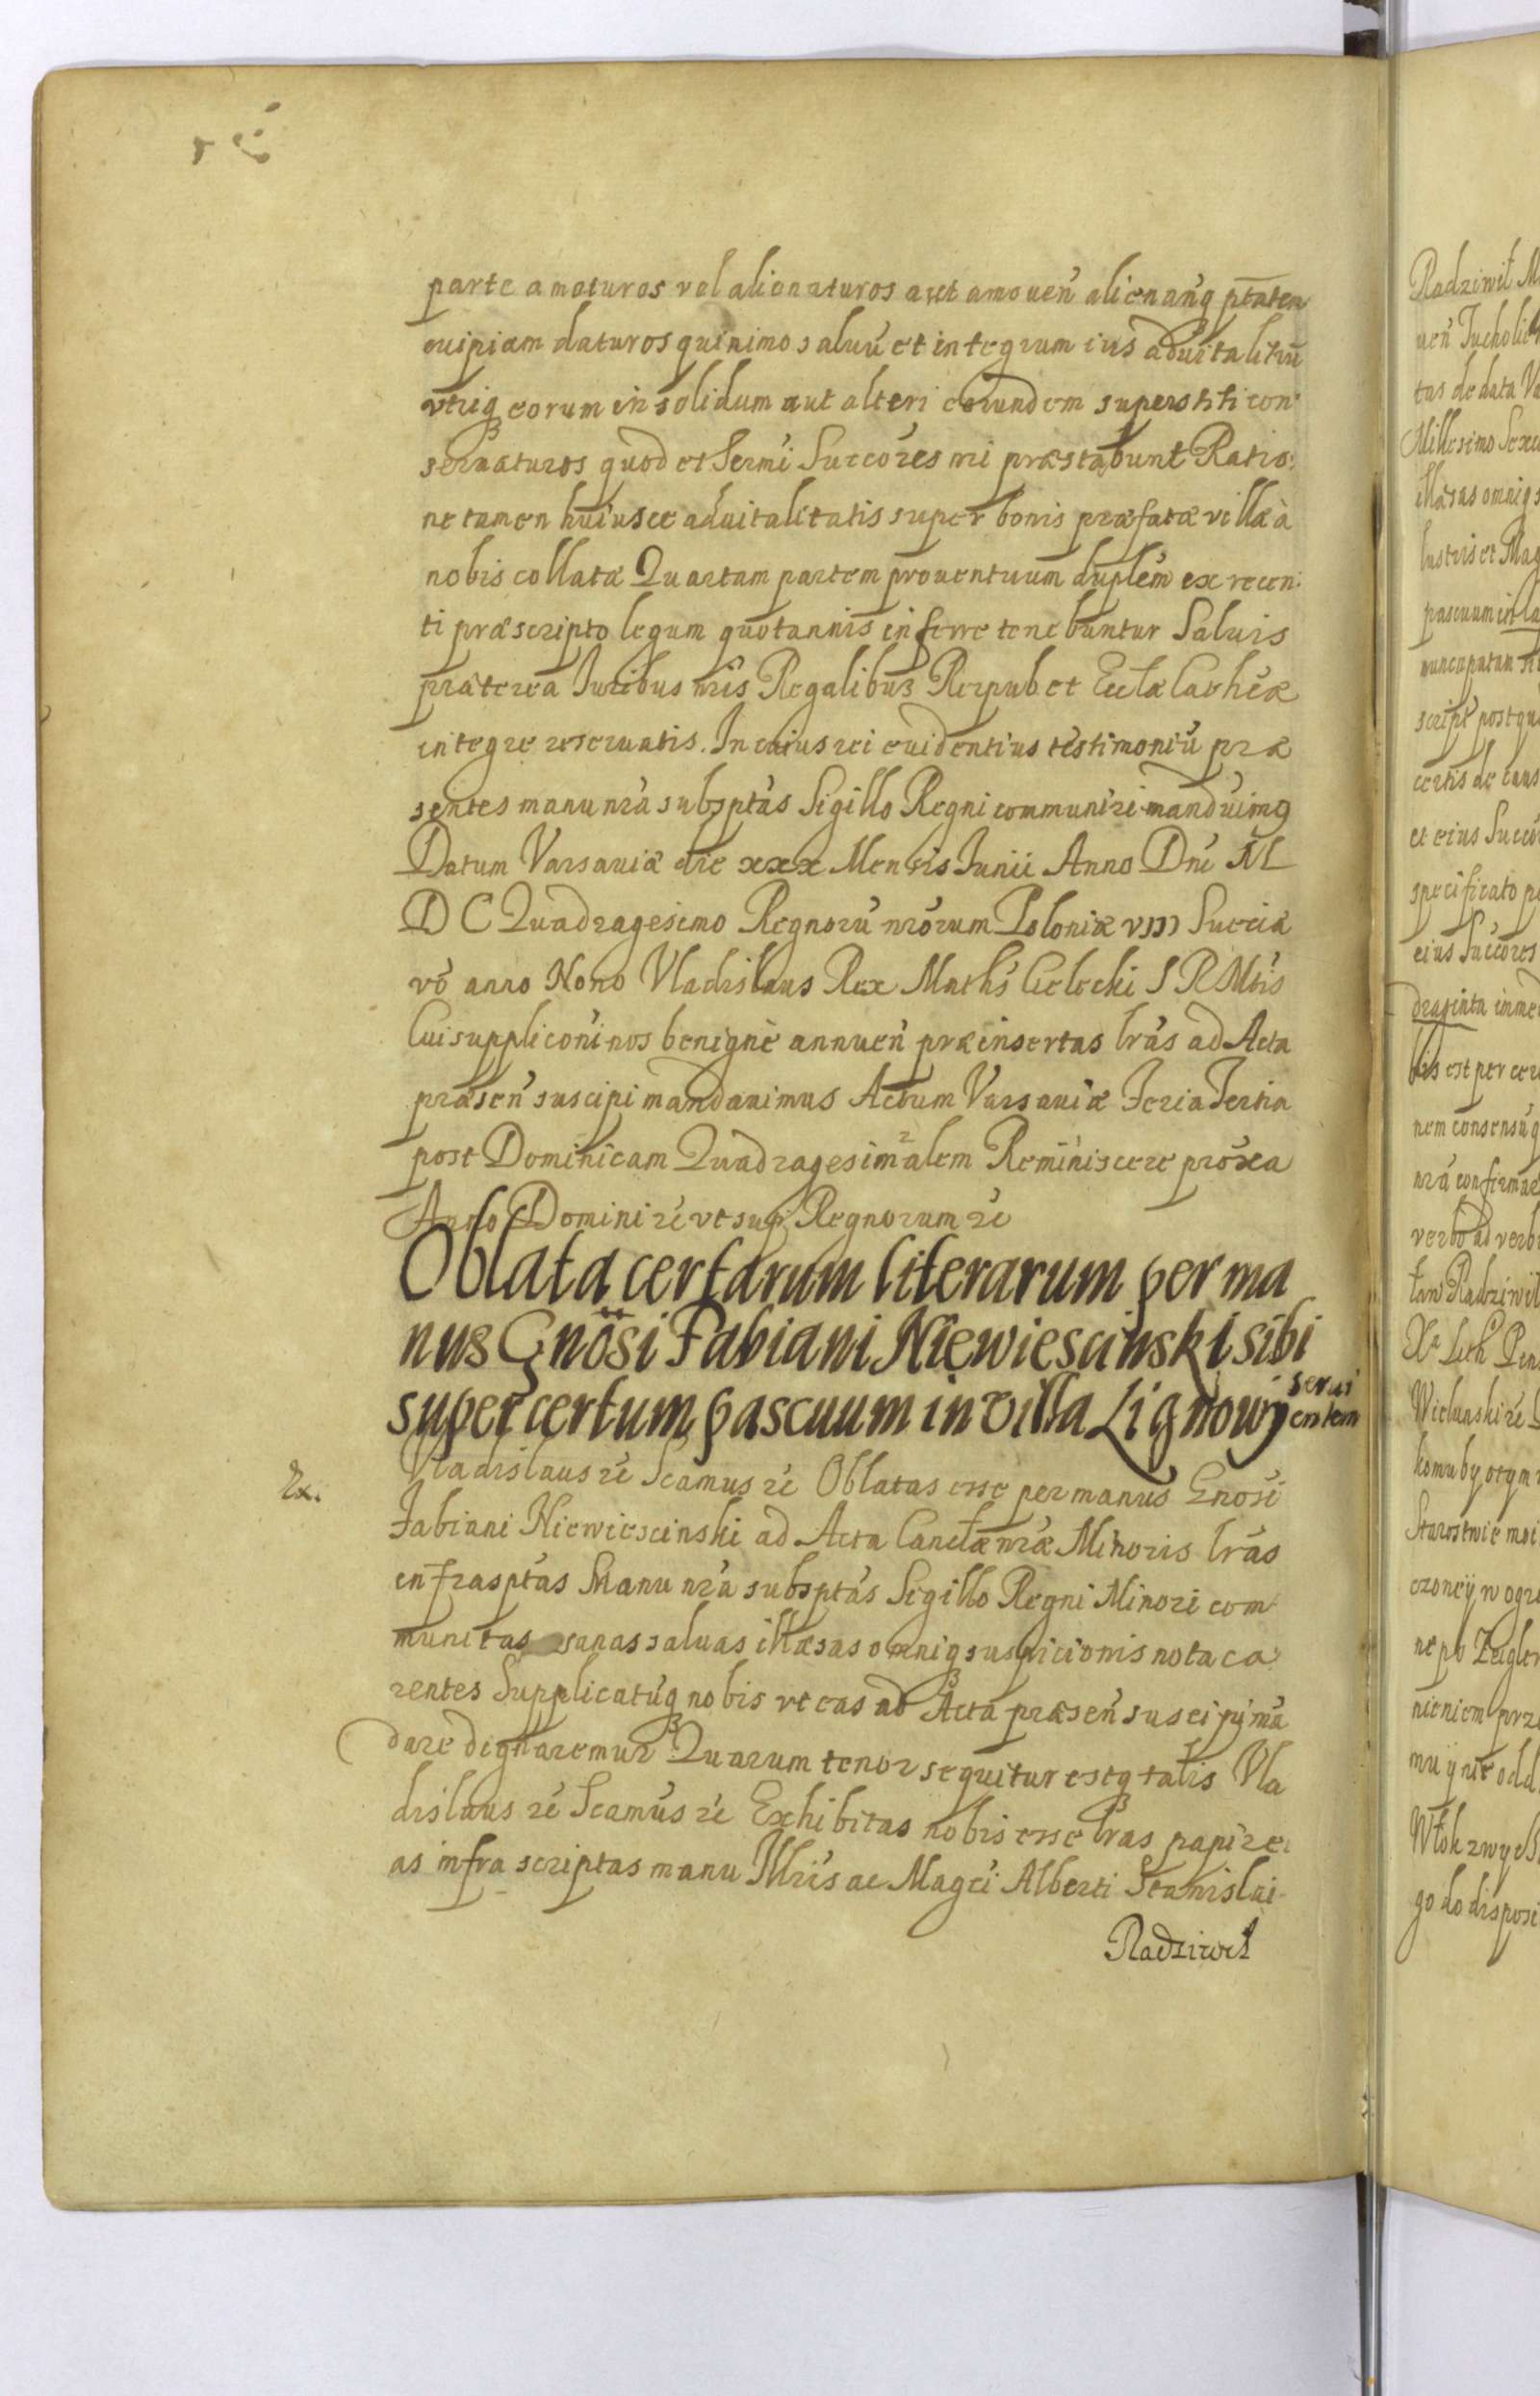 parte amoturos vel alienaturos aut amouen̄ alienan̄q ptaten
cuipiam daturos quinimo saluū et integrum ius aduitalitiū
vtriq eorum in solidum aut alteri eorundem superstiti con
seruaturos quod et Sermi Succores nri præstabunt Ratio:
ne tamen huiusce aduitalitatis super bonis præfatæ villæ à
nobis collatæ Quartam partem prouentuum duplem ex recen:
ti præscripto legum quotannis inferre tenebuntur Saluis
præterea Iuribus nris Regalibus Reipub et Ecclæ Cathcæ
integre reseruatis. In cuius rei euidentius testimoniū præ
sentes manu nra subsptas Sigillo Regni communiri manduimq
Datum Varsauiæ die xxx Mensis Iunii Anno Dni M
D C Quadragesimo Regnorū nrorum Poloniæ VIII Sueciæ
vo anno Nono Vladislaus Rex Maths Cielecki S R Mtis
Cui suppliconi nos benignè annuen præinsertas lras ad Acta
præsen suscipi mandauimus Actum Varsauiæ Feria Tertia
post Dominicam Quadragesimalem Reminiscere proxa
Anno Domini rc vt sup Regnorum rc
Oblata certarum literarum per ma
nus Gnosi Fabiani Niewiescinski sibi
super certum pascuum in villa Lignowy serui
entem
Ex. Vladislaus rc Scamus rc Oblatas esse per manus Gnosi
Fabiani Niewiescinski ad Acta Canclæ nræ Minoris lras
infrasptas Manu nra subsptas Sigillo Regni Minori com
munitas sanas saluas illæsas omniq suspicionis nota ca
rentes Supplicatūq nobis vt eas ad Acta præsen suscipi mā
dare dignaremur Quarum tenor sequitur estq talis Vla
dislaus rc Scamus rc Exhibitas nobis esse lras papire
as infra scriptas manu Illris ac Magci Alberti Stanislai
Radziwił

Radziwił
uen Tucholien
tas de data
Millesimo Sexce
illæsas omniq s
lustris et Mag
pascuum in
nuncupatan
script postqua
certis de caus
et eius Succo
specificato
eius Succores
draginta inme
bis est per cer
nem consensuq
nra confirmar
verbo ad verb
Radziwil
X Lith
Wielunski rc
komu by o tym
Starostwie moi
czoney w ogro
ne po Zeigler
nieniem prz
mu y nie odd
Włok zwycz
go do disposi